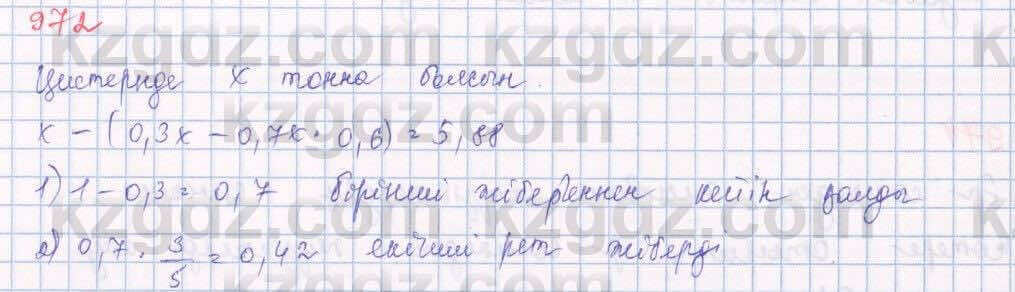 972
Цистернде x тонна болсын.
x - (0,3x - 0,7x · 0,6) = 5,88
1) 1 - 0,3 = 0,7 бірінші жібергеннен кейін қалды
2) 0,7 · 3/5 = 0,42 екінші рет жіберді
kzgdz.com